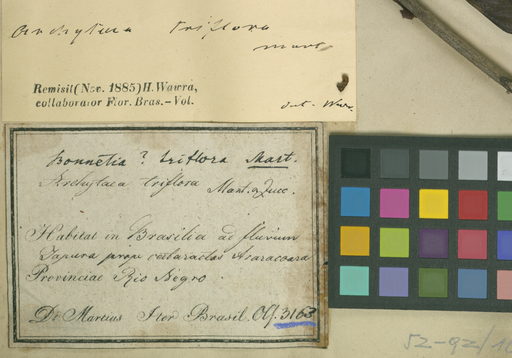 Archytaea triflora
Mart.
Remisit (Nov. 1885) H. Wawra,
collaborator Flor. Bras. — Vol.
det. Waw.
Bonnetia? triflora Mart.
Archytaea triflora Mart. & Zucc.
Habitat in Brasilia ad fluvium
Japura prope cataractas Araracoara
Provinciae Rio Negro
Dr. Martius Iter Brasil. Obs. 3163